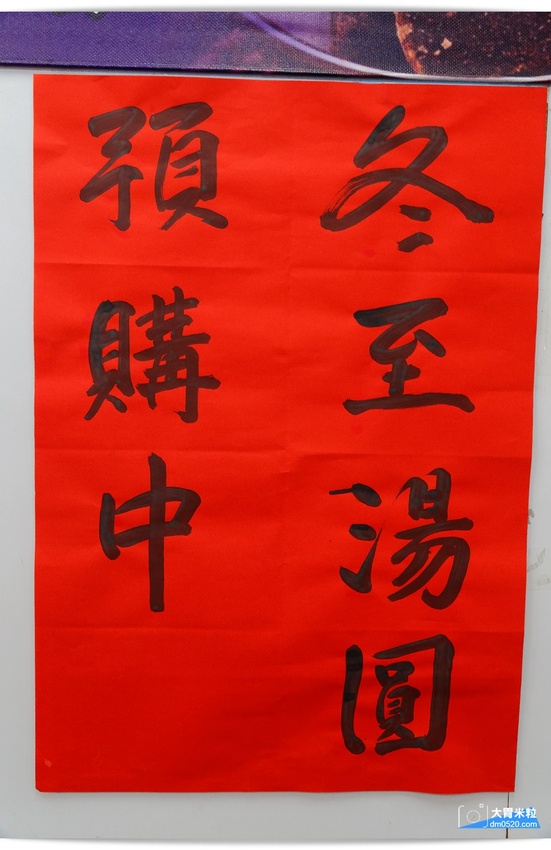 冬至湯圓
預購中
大胃米粒
dm0520.com